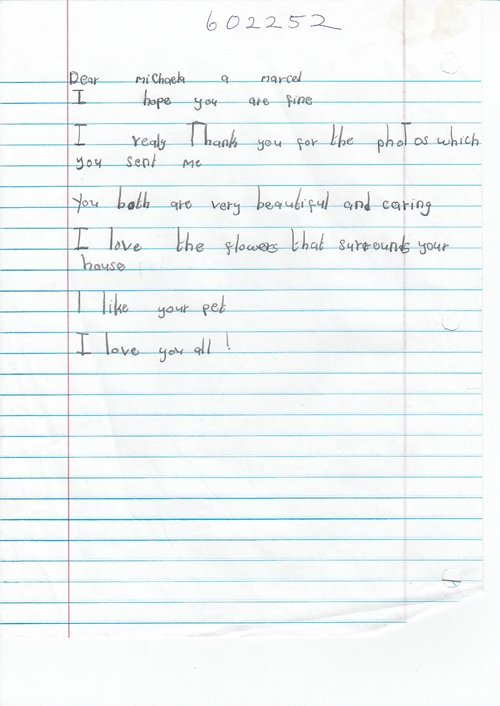 602252
Dear michaela a marcel
I hope you are fine
I realy Thank you for the photos which
you sent me
you both are very beautiful and caring
I love the flowers that surrounds your
house
I like your pet
I love you all !